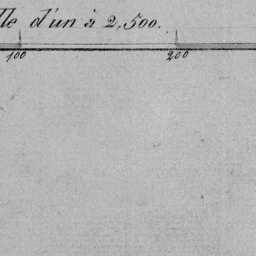 lle d'un à 2,500.
100 200